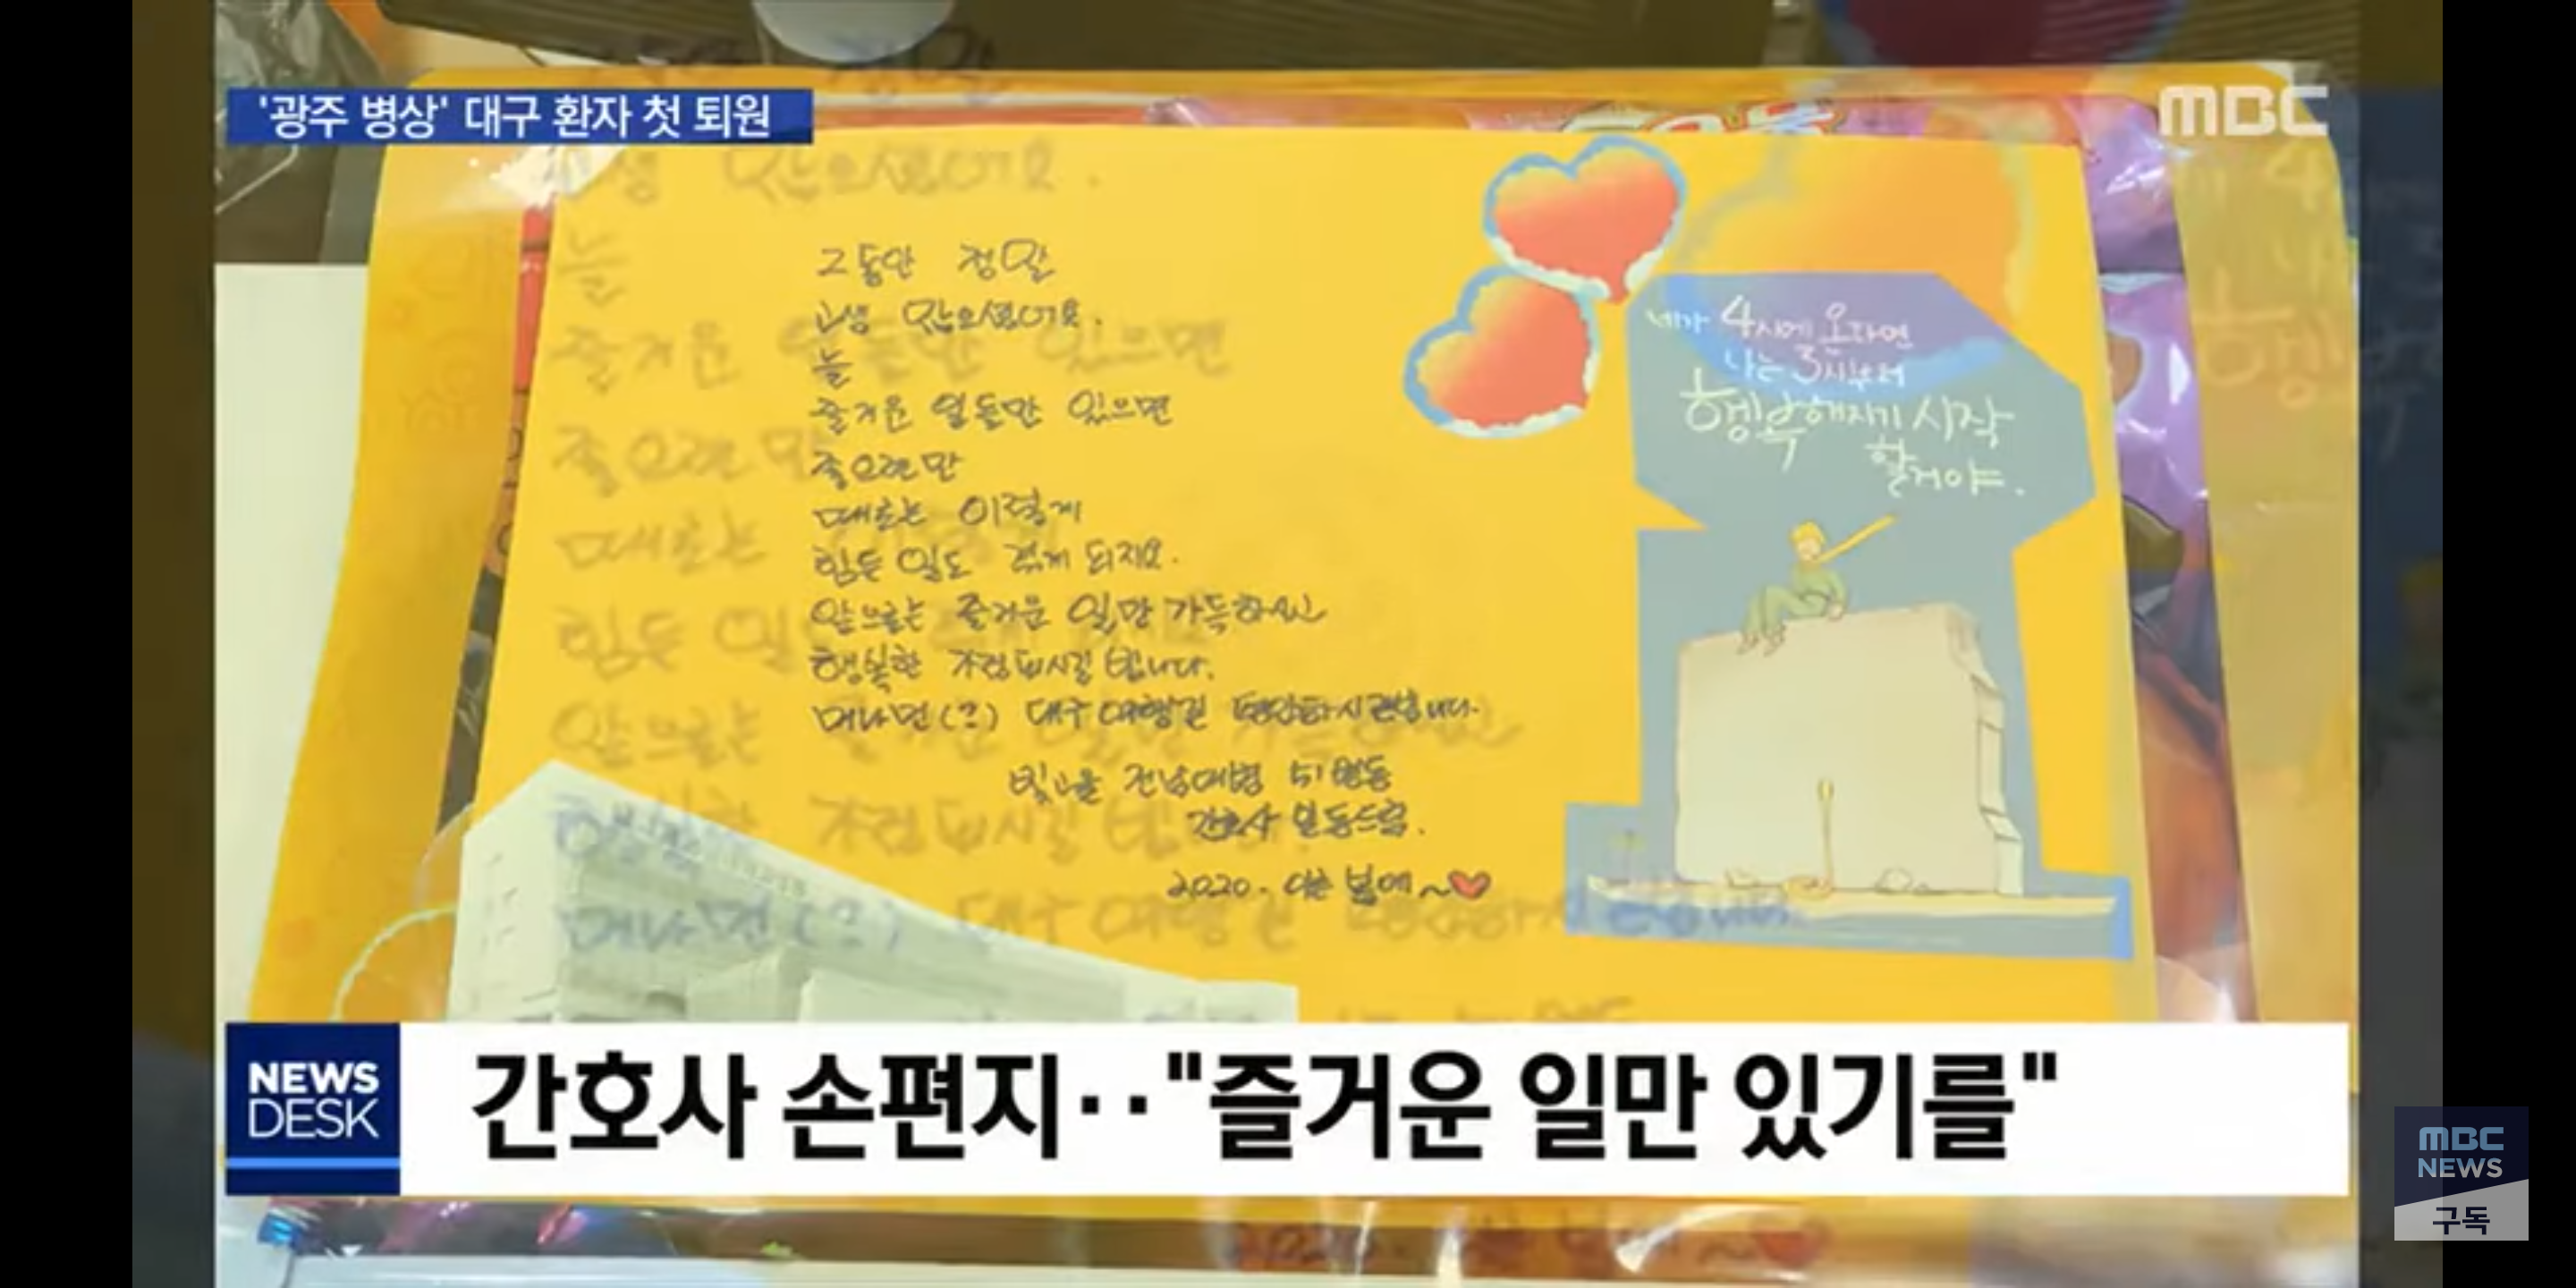 '광주 병상' 대구 환자 첫 퇴원
MBC
그동안 정말
고생 많으셨어요.
늘
즐거운 일들만 있으면
좋으련만
때로는 이렇게
힘든 일도 겪게 되지요.
앞으로는 즐거운 일만 가득하신
행복한 가정 되시길 빕니다.
머나먼(?) 대구 여행길 평안하시길 빕니다.
빛고을 전남대병 51병동
간호사 일동드림.
2020. 어느 봄에~
네가 4시에 온다면
나는 3시부터
행복해지기 시작
할거야.
NEWS
DESK
간호사 손편지‥"즐거운 일만 있기를"
MBC
NEWS
구독